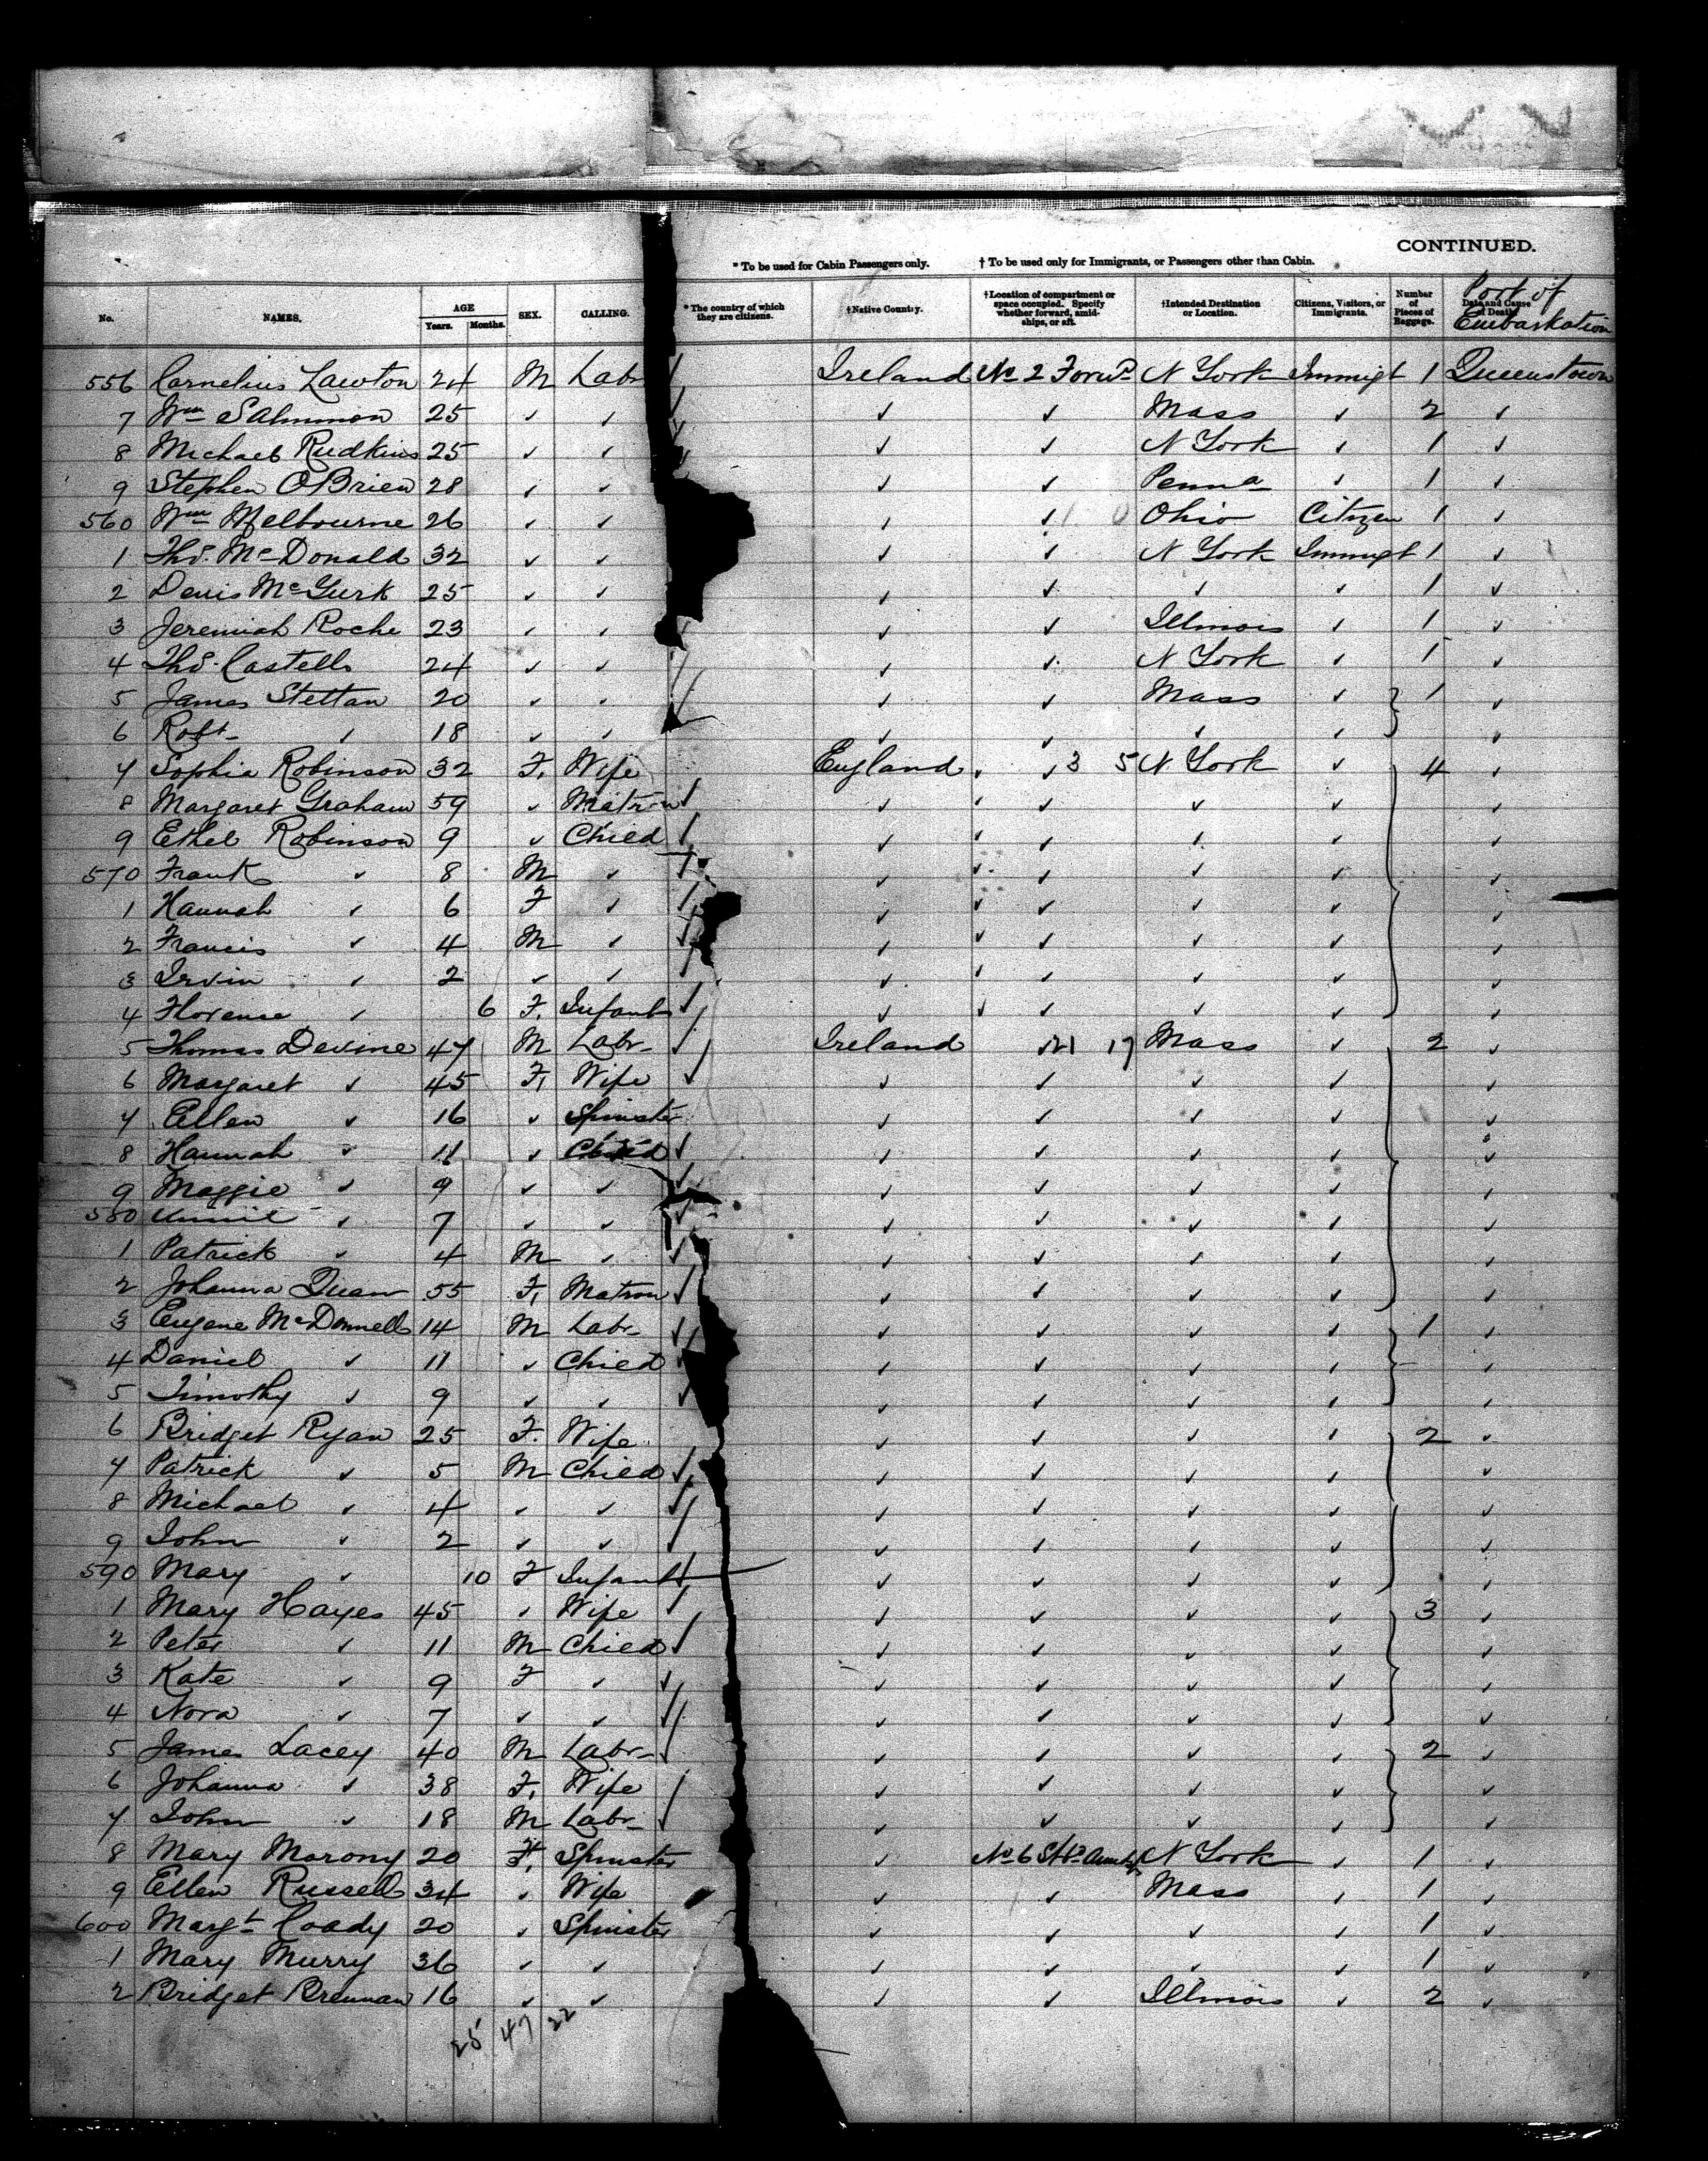 CONTINUED.
* To be used for Cabin Passengers only. † To be used only for Immigrants, or Passengers other than Cabin.
No. NAMES. AGE Years. Months. SEX. CALLING. * The country of which they are citizens. † Native Country. † Location of compartment or space occupied. Specify whether forward, amidships, or aft. † Intended Destination or Location. Citizens, Visitors, or Immigrants. Number of Pieces of Baggage. Date and Cause of Death. Port of Embarkation
556 Cornelius Lawton 24 M Labr Ireland No 2 Forwd N York Immigt 1 Queenstown
7 Wm Salmmon 25 ✓ ✓ ✓ ✓ Mass ✓ 2 ✓
8 Michael Rudkins 25 ✓ ✓ ✓ ✓ N York ✓ 1 ✓
9 Stephen O'Brien 28 ✓ ✓ ✓ ✓ Penna ✓ 1 ✓
560 Wm Melbourne 26 ✓ ✓ ✓ ✓ Ohio Citizen 1 ✓
1 Thos. McDonald 32 ✓ ✓ ✓ ✓ N York Immigt 1 ✓
2 Denis McGurk 25 ✓ ✓ ✓ ✓ ✓ ✓ 1 ✓
3 Jeremiah Roche 23 ✓ ✓ ✓ ✓ Illinois ✓ 1 ✓
4 Thos. Castello 24 ✓ ✓ ✓ ✓ N York ✓ 1 ✓
5 James Stettan 20 ✓ ✓ ✓ ✓ Mass ✓ 1 ✓
6 Robt ✓ 18 ✓ ✓ ✓ ✓ ✓ ✓ ✓
7 Sophia Robinson 32 F. Wife England ✓ 3 5 N York ✓ 4 ✓
8 Margaret Graham 59 ✓ Matron ✓ ✓ ✓ ✓ ✓
9 Ethel Robinson 9 ✓ Child ✓ ✓ ✓ ✓ ✓
570 Frank ✓ 8 M ✓ ✓ ✓ ✓ ✓ ✓
1 Hannah ✓ 6 F ✓ ✓ ✓ ✓ ✓ ✓
2 Francis ✓ 4 M ✓ ✓ ✓ ✓ ✓ ✓
3 Irvin ✓ 2 ✓ ✓ ✓ ✓ ✓ ✓ ✓
4 Florence ✓ 6 F. Infant ✓ ✓ ✓ ✓ ✓
5 Thomas Devine 47 M Labr Ireland ✓ 21 17 Mass ✓ 2 ✓
6 Margaret ✓ 45 F. Wife ✓ ✓ ✓ ✓ ✓
7 Ellen ✓ 16 ✓ Spinster ✓ ✓ ✓ ✓ ✓
8 Hannah ✓ 11 ✓ Child ✓ ✓ ✓ ✓ ✓
9 Maggie ✓ 9 ✓ ✓ ✓ ✓ ✓ ✓ ✓
580 ✓ 7 ✓ ✓ ✓ ✓ ✓ ✓ ✓
1 Patrick ✓ 4 M ✓ ✓ ✓ ✓ ✓ ✓
2 Johanna Quan 55 F. Matron ✓ ✓ ✓ ✓ ✓
3 Eugene McDonnell 14 M Labr ✓ ✓ ✓ ✓ 1 ✓
4 Daniel ✓ 11 ✓ Child ✓ ✓ ✓ ✓ ✓
5 Timothy ✓ 9 ✓ ✓ ✓ ✓ ✓ ✓ ✓
6 Bridget Ryan 25 F. Wife ✓ ✓ ✓ ✓ 2 ✓
7 Patrick ✓ 5 M Child ✓ ✓ ✓ ✓ ✓
8 Michael ✓ 4 ✓ ✓ ✓ ✓ ✓ ✓ ✓
9 John ✓ 2 ✓ ✓ ✓ ✓ ✓ ✓ ✓
590 Mary ✓ 10 F Infant ✓ ✓ ✓ ✓ ✓
1 Mary Hayes 45 ✓ Wife ✓ ✓ ✓ ✓ 3 ✓
2 Peter ✓ 11 M Child ✓ ✓ ✓ ✓ ✓
3 Kate ✓ 9 F ✓ ✓ ✓ ✓ ✓ ✓
4 Nora ✓ 7 ✓ ✓ ✓ ✓ ✓ ✓ ✓
5 James Lacey 40 M Labr ✓ ✓ ✓ ✓ 2 ✓
6 Johanna ✓ 38 F. Wife ✓ ✓ ✓ ✓ ✓
7 John ✓ 18 M Labr ✓ ✓ ✓ ✓ ✓
8 Mary Morony 20 F. Spinster ✓ No 6 N York ✓ 1 ✓
9 Ellen Russell 34 ✓ Wife ✓ ✓ Mass ✓ 1 ✓
600 Margt Coady 20 ✓ Spinster ✓ ✓ ✓ ✓ 1 ✓
1 Mary Murry 36 ✓ ✓ ✓ ✓ ✓ ✓ 1 ✓
2 Bridget Brennan 16 ✓ ✓ ✓ ✓ Illinois ✓ 2 ✓
25 47 22